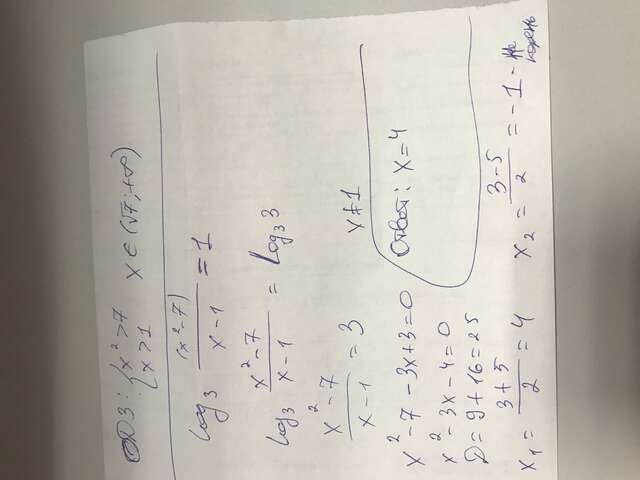 ОДЗ: { x² > 7
x > 1 x ∈ (√7; +∞)
log₃ (x²-7)/(x-1) = 1
log₃ (x²-7)/(x-1) = log₃ 3
(x²-7)/(x-1) = 3
x ≠ 1
x² - 7 - 3x + 3 = 0
Ответ: x = 4
x² - 3x - 4 = 0
D = 9 + 16 = 25
x₁ = (3+5)/2 = 4 x₂ = (3-5)/2 = -1 - не корень